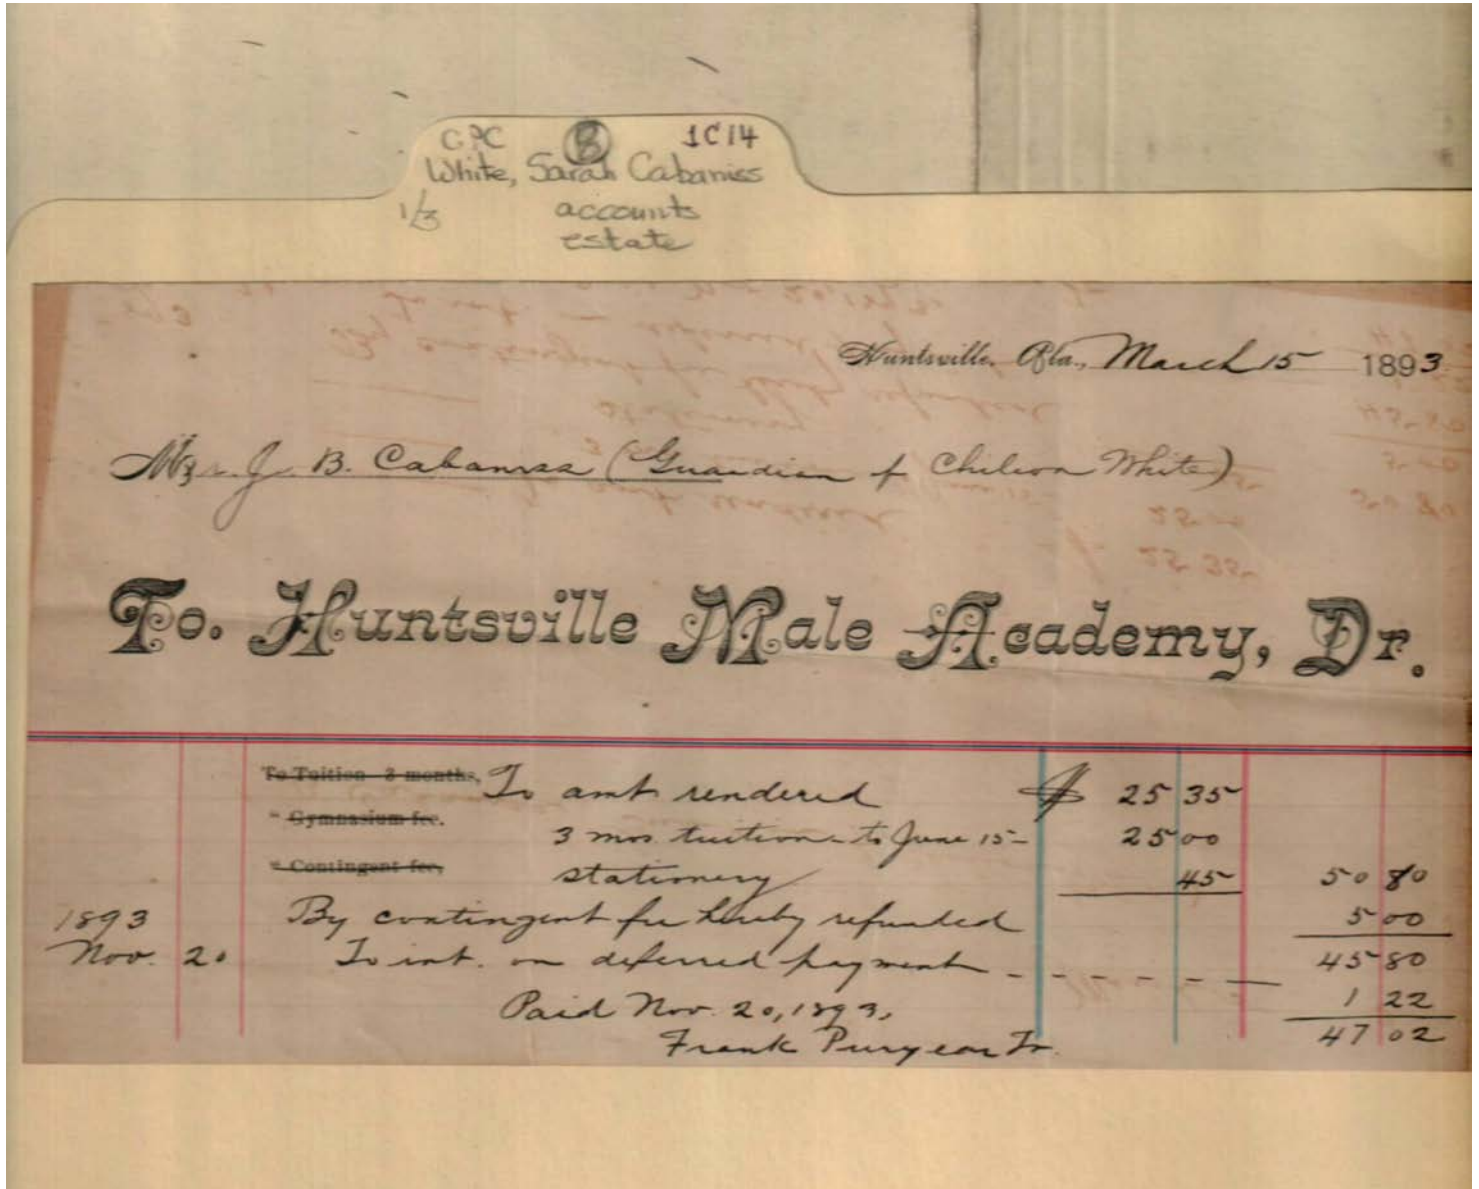 C.P.C B 1C14
White, Sarah Cabaniss
1/3 accounts
estate
Huntsville, Ala., March 15 1893
Mr. J. B. Cabaniss (Guardian of Chileon White)
To. Huntsville Male Academy, Dr.
To Tuition 3 months, To amt rendered $ 25 35
" Gymnasium fee. 3 mos. tuition - to June 15- 25 00
" Contingent fee, stationery 45 50 80
1893 By contingent fee hereby refunded 5 00
Nov. 20 To int. on deferred payment - - - - - - 45 80
Paid Nov. 20, 1893, 1 22
Frank Puryear Tr. 47 02